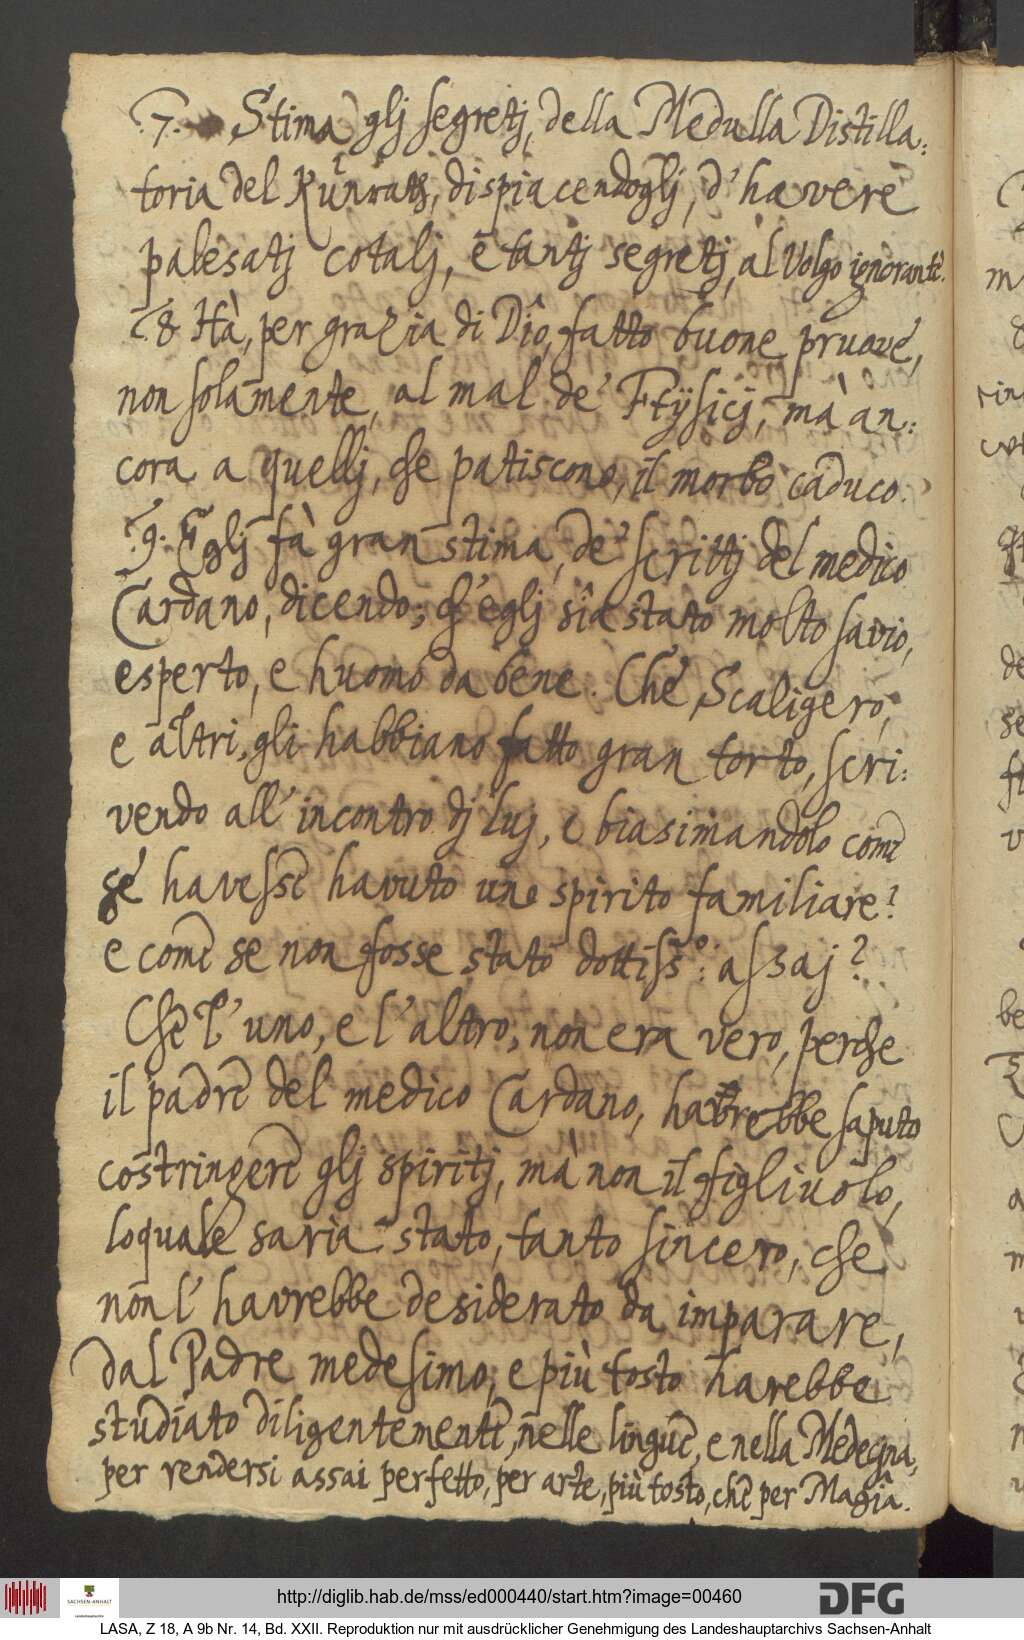 .7. Stima glj segretj, della Medulla Distilla:
toria del Kunrath, dispiacendoglj, d'havere
palesatj cotalj, e tantj segretj, al Volgo ignorante.
.8. Hà, per grazia di Dio, fatto buone pruove,
non solamente, al mal de' Ftÿsicj, mà an:
cora a quellj, che patiscono, il morbo caduco.
.9. Eglj fà gran stima, de' scrittj del medico
Cardano, dicendo; ch'eglj sia stato molto savio,
esperto, e huomo da bene. Che Scaligero,
e altri, gli habbiano fatto gran torto, scri:
vendo all'incontro dj luj, e biasimandolo come
se havesse havuto uno spirito familiare?
e come se non fosse stato dottiss.º: assaj?
Che l'uno, e l'altro, non era vero, perche
il padre del medico Cardano, havrebbe saputo
costringere glj spiritj, mà non il figliuolo,
loquale saria stato, tanto sincero, che
non l'havrebbe desiderato da imparare,
dal Padre medesimo, e più tosto harebbe
studiato diligentemente, nelle lingue, e nella Medecina,
per rendersi assai perfetto, per arte, più tosto, che per Magia.
SACHSEN-ANHALT
http://diglib.hab.de/mss/ed000440/start.htm?image=00460
DFG
LASA, Z 18, A 9b Nr. 14, Bd. XXII. Reproduktion nur mit ausdrücklicher Genehmigung des Landeshauptarchivs Sachsen-Anhalt